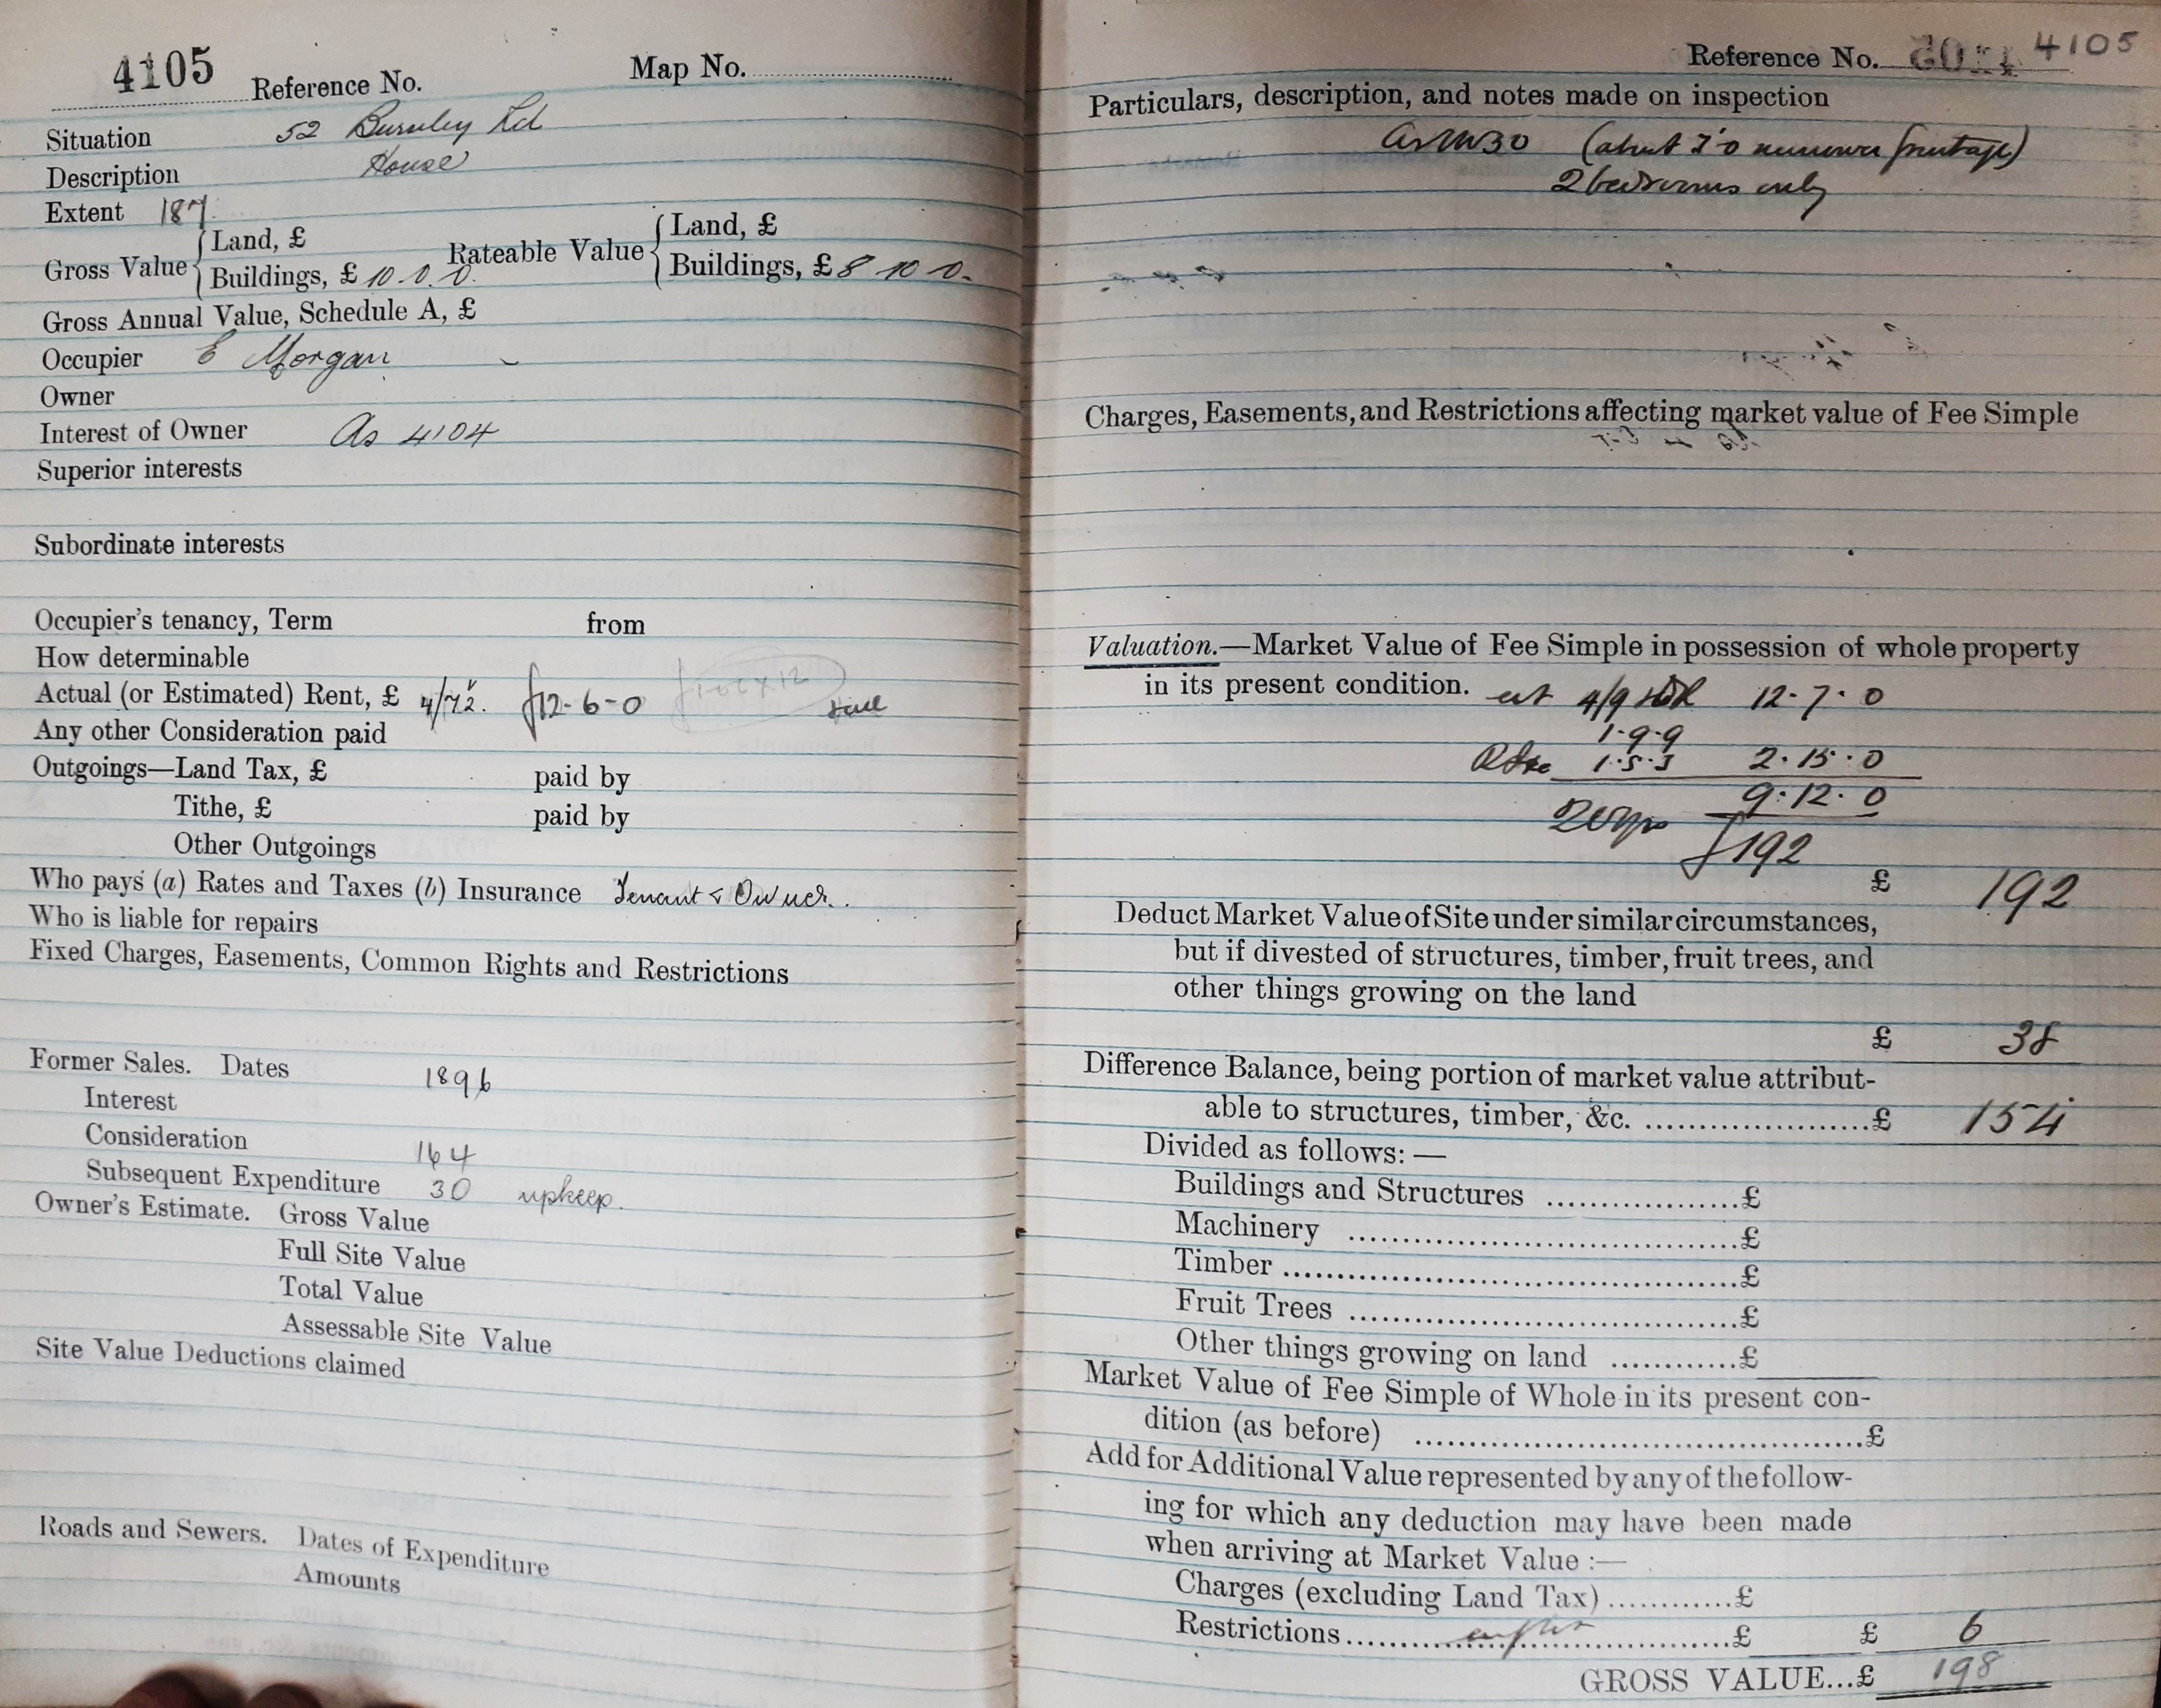 4105 Reference No. Map No.
Situation 52 Burnley Rd
Description House
Extent 187
Gross Value { Land, £
Buildings, £ 10. 0. 0. Rateable Value { Land, £
Buildings, £ 8 10 0.
Gross Annual Value, Schedule A, £
Occupier E Morgan
Owner
Interest of Owner As 4104
Superior interests
Subordinate interests
Occupier's tenancy, Term from
How determinable
Actual (or Estimated) Rent, £ £12-6-0
Any other Consideration paid
Outgoings—Land Tax, £ paid by
Tithe, £ paid by
Other Outgoings
Who pays (a) Rates and Taxes (b) Insurance Tenant & Owner.
Who is liable for repairs
Fixed Charges, Easements, Common Rights and Restrictions
Former Sales. Dates 1896
Interest
Consideration 164
Subsequent Expenditure 30 upkeep.
Owner's Estimate. Gross Value
Full Site Value
Total Value
Assessable Site Value
Site Value Deductions claimed
Roads and Sewers. Dates of Expenditure
Amounts
Reference No. 4105
Particulars, description, and notes made on inspection
(about narrower frontage)
2 bedrooms only
Charges, Easements, and Restrictions affecting market value of Fee Simple
Valuation.—Market Value of Fee Simple in possession of whole property
in its present condition. at 4/9 12. 7. 0
1. 9. 9
1. 5. 3 2. 15. 0
9. 12. 0
20yp £192
£ 192
Deduct Market Value of Site under similar circumstances,
but if divested of structures, timber, fruit trees, and
other things growing on the land
£ 38
Difference Balance, being portion of market value attribut-
able to structures, timber, &c. ......................£ 154
Divided as follows: —
Buildings and Structures ...................£
Machinery ......................................£
Timber .............................................£
Fruit Trees ......................................£
Other things growing on land ............£
Market Value of Fee Simple of Whole in its present con-
dition (as before) ............................................£
Add for Additional Value represented by any of the follow-
ing for which any deduction may have been made
when arriving at Market Value :—
Charges (excluding Land Tax)............£
Restrictions......................................£ £ 6
GROSS VALUE...£ 198